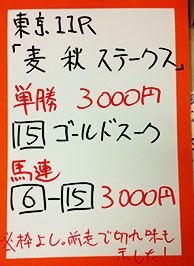 東京11R
「麦秋ステークス」
単勝 3000円
15 ゴールドスーク
馬連
6-15 3000円
※枠よし。前走で切れ味も
示した!